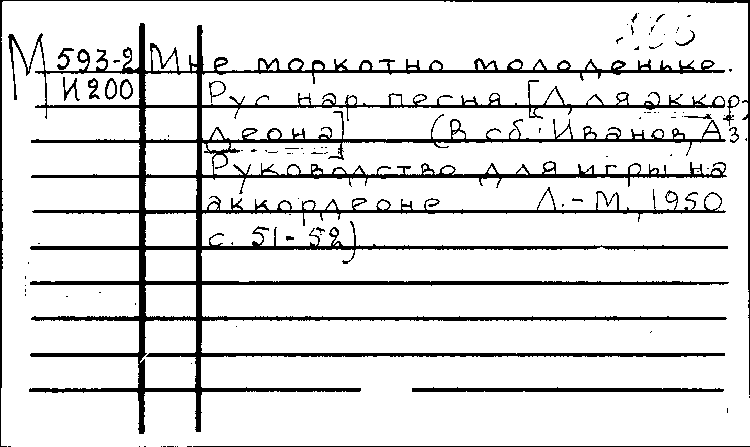 М 593-2 Мне моркотно молоденьке.
И 200 Рус. нар. песня. [Для аккор-
деона] (В сб.: Иванов, Аз.
Руководство для игры на
аккордеоне Л.-М., 1950
с. 51-52).